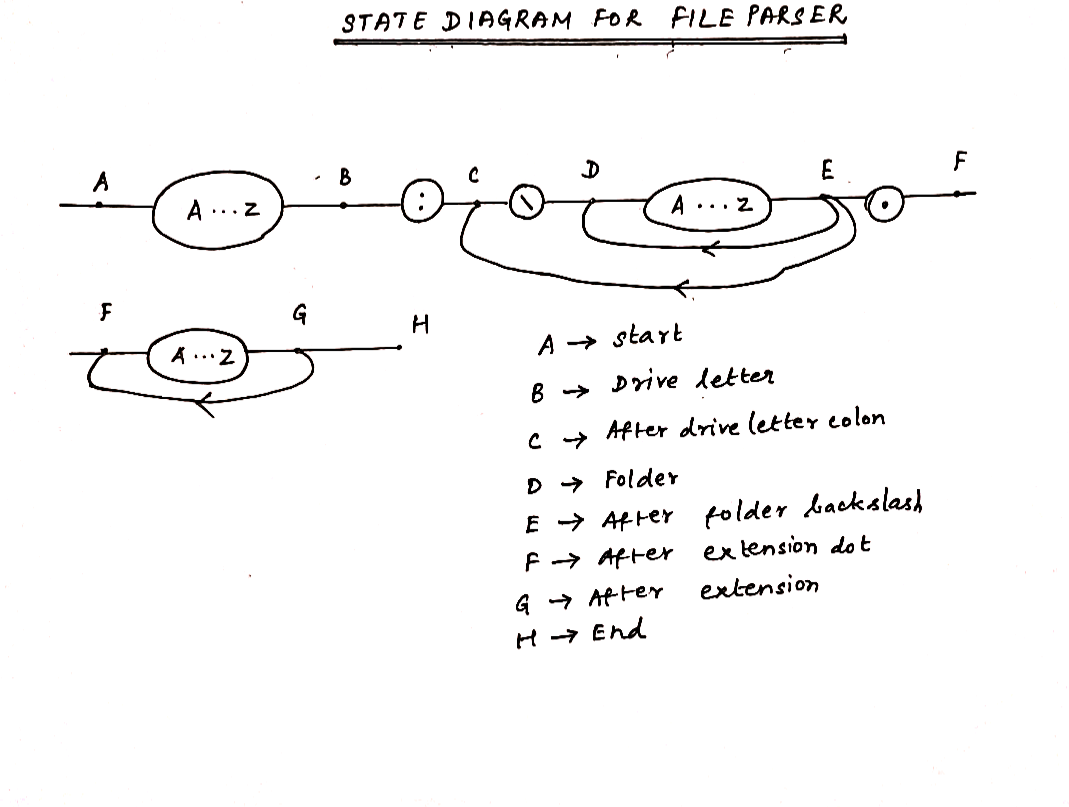 STATE DIAGRAM FOR FILE PARSER
A A...Z B : C \ D A...Z E . F
F A...Z G H
A → start
B → Drive letter
C → After drive letter colon
D → Folder
E → After folder backslash
F → After extension dot
G → After extension
H → End